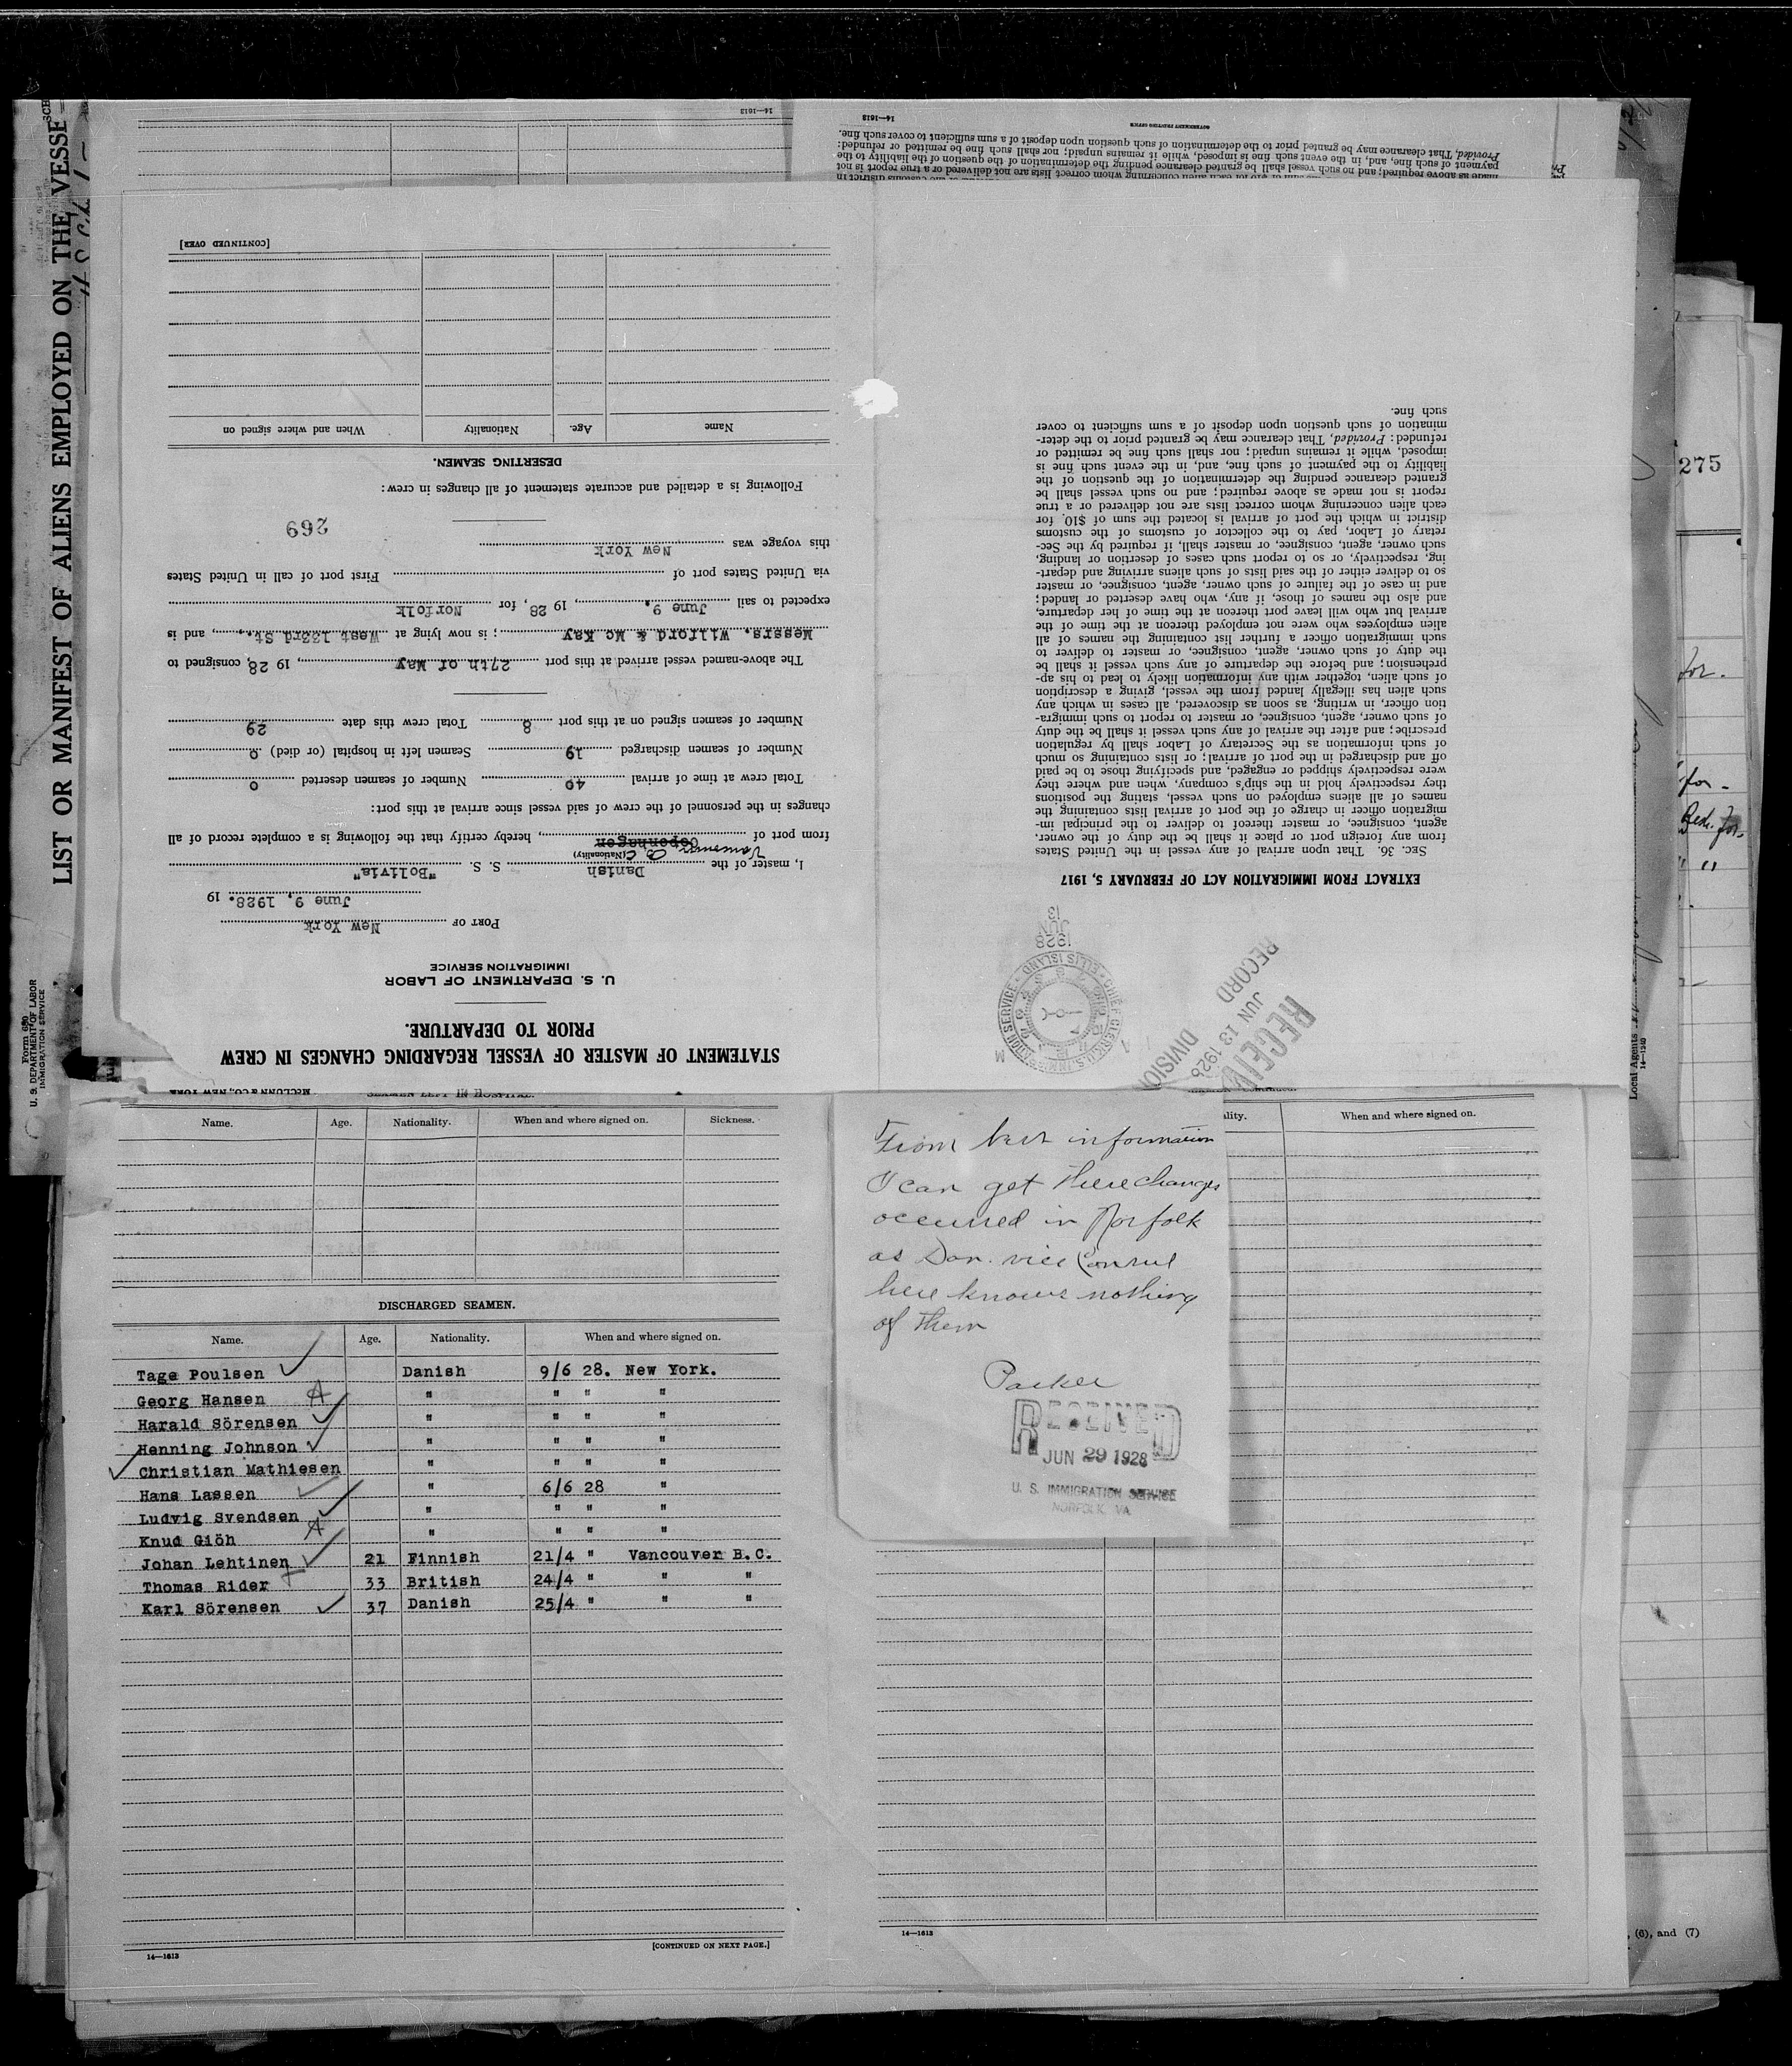 LIST OR MANIFEST OF ALIENS EMPLOYED ON THE VESSE
Form 680
U. S. DEPARTMENT OF LABOR
IMMIGRATION SERVICE
14—1613
made as above required; and no such vessel shall be granted clearance pending the determination of the question of the liability to the
payment of such fine, and, in the event such fine is imposed, while it remains unpaid; nor shall such fine be remitted or refunded:
Provided, That clearance may be granted prior to the determination of such question upon deposit of a sum sufficient to cover such fine.
GOVERNMENT PRINTING OFFICE
14—1613
STATEMENT OF MASTER OF VESSEL REGARDING CHANGES IN CREW
PRIOR TO DEPARTURE.
U. S. DEPARTMENT OF LABOR
IMMIGRATION SERVICE
PORT OF New York
June 9, 1928. 19
I, master of the Danish S. S. "Bolivia"
(Nationality)
Vancouver B C
from port of Copenhagen, hereby certify that the following is a complete record of all
changes in the personnel of the crew of said vessel since arrival at this port:
Total crew at time of arrival 40 Number of seamen deserted 0
Number of seamen discharged 19 Seamen left in hospital (or died) 0
Number of seamen signed on at this port 8 Total crew this date 29
The above-named vessel arrived at this port 27th of May, 19 28, consigned to
Messrs. Wilford & Mc Kay; is now lying at West 133rd St., and is
expected to sail June 9., 19 28, for Norfolk
via United States port of First port of call in United States
this voyage was New York
269
Following is a detailed and accurate statement of all changes in crew:
DESERTING SEAMEN.
Name Age. Nationality When and where signed on
[CONTINUED OVER]
RECEIV
JUN 13 1928
RECORD DIVISION
CHIEF CLERK
ELLIS ISLAND
1928
JUN
13
EXTRACT FROM IMMIGRATION ACT OF FEBRUARY 5, 1917
SEC. 36. That upon arrival of any vessel in the United States
from any foreign port or place it shall be the duty of the owner,
agent, consignee, or master thereof to deliver to the principal im-
migration officer in charge of the port of arrival lists containing the
names of all aliens employed on such vessel, stating the positions
they respectively hold in the ship's company, when and where they
were respectively shipped or engaged, and specifying those to be paid
off and discharged in the port of arrival; or lists containing so much
of such information as the Secretary of Labor shall by regulation
prescribe; and after the arrival of any such vessel it shall be the duty
of such owner, agent, consignee, or master to report to such immigra-
tion officer, in writing, as soon as discovered, all cases in which any
such alien has illegally landed from the vessel, giving a description
of such alien, together with any information likely to lead to his ap-
prehension; and before the departure of any such vessel it shall be
the duty of such owner, agent, consignee, or master to deliver to
such immigration officer a further list containing the names of all
alien employees who were not employed thereon at the time of the
arrival but who will leave port thereon at the time of her departure,
and also the names of those, if any, who have deserted or landed;
and in case of the failure of such owner, agent, consignee, or master
so to deliver either of the said lists of such aliens arriving and depart-
ing, respectively, or so to report such cases of desertion or landing,
such owner, agent, consignee, or master shall, if required by the Sec-
retary of Labor, pay to the collector of customs of the customs
district in which the port of arrival is located the sum of $10 for
each alien concerning whom correct lists are not delivered or a true
report is not made as above required; and no such vessel shall be
granted clearance pending the determination of the question of the
liability to the payment of such fine, and, in the event such fine is
imposed, while it remains unpaid; nor shall such fine be remitted or
refunded: Provided, That clearance may be granted prior to the deter-
mination of such question upon deposit of a sum sufficient to cover
such fine.
275
for.
for.
Local Agents
14—1240
McLUNN & CO., NEW YORK
SEAMEN LEFT IN HOSPITAL.
Name. Age. Nationality. When and where signed on. Sickness.
DISCHARGED SEAMEN.
Name. Age. Nationality. When and where signed on.
Tage Poulsen Danish 9/6 28. New York.
Georg Hansen " " " "
Harald Sörensen " " " "
Henning Johnson " " " "
Christian Mathiesen " " " "
Hans Lassen " 6/6 28 "
Ludvig Svendsen " " " "
Knud Giöh " " " "
Johan Lehtinen 21 Finnish 21/4 " Vancouver B.C.
Thomas Rider 33 British 24/4 " " "
Karl Sörensen 37 Danish 25/4 " " "
14—1613 [CONTINUED ON NEXT PAGE.]
lity. When and where signed on.
From best information
I can get these changes
occurred in Norfolk
as Dan. vice Consul
here knows nothing
of them
Parker
RECEIVED
JUN 29 1928
U. S. IMMIGRATION SERVICE
NORFOLK VA
14—1613
, (6), and (7)